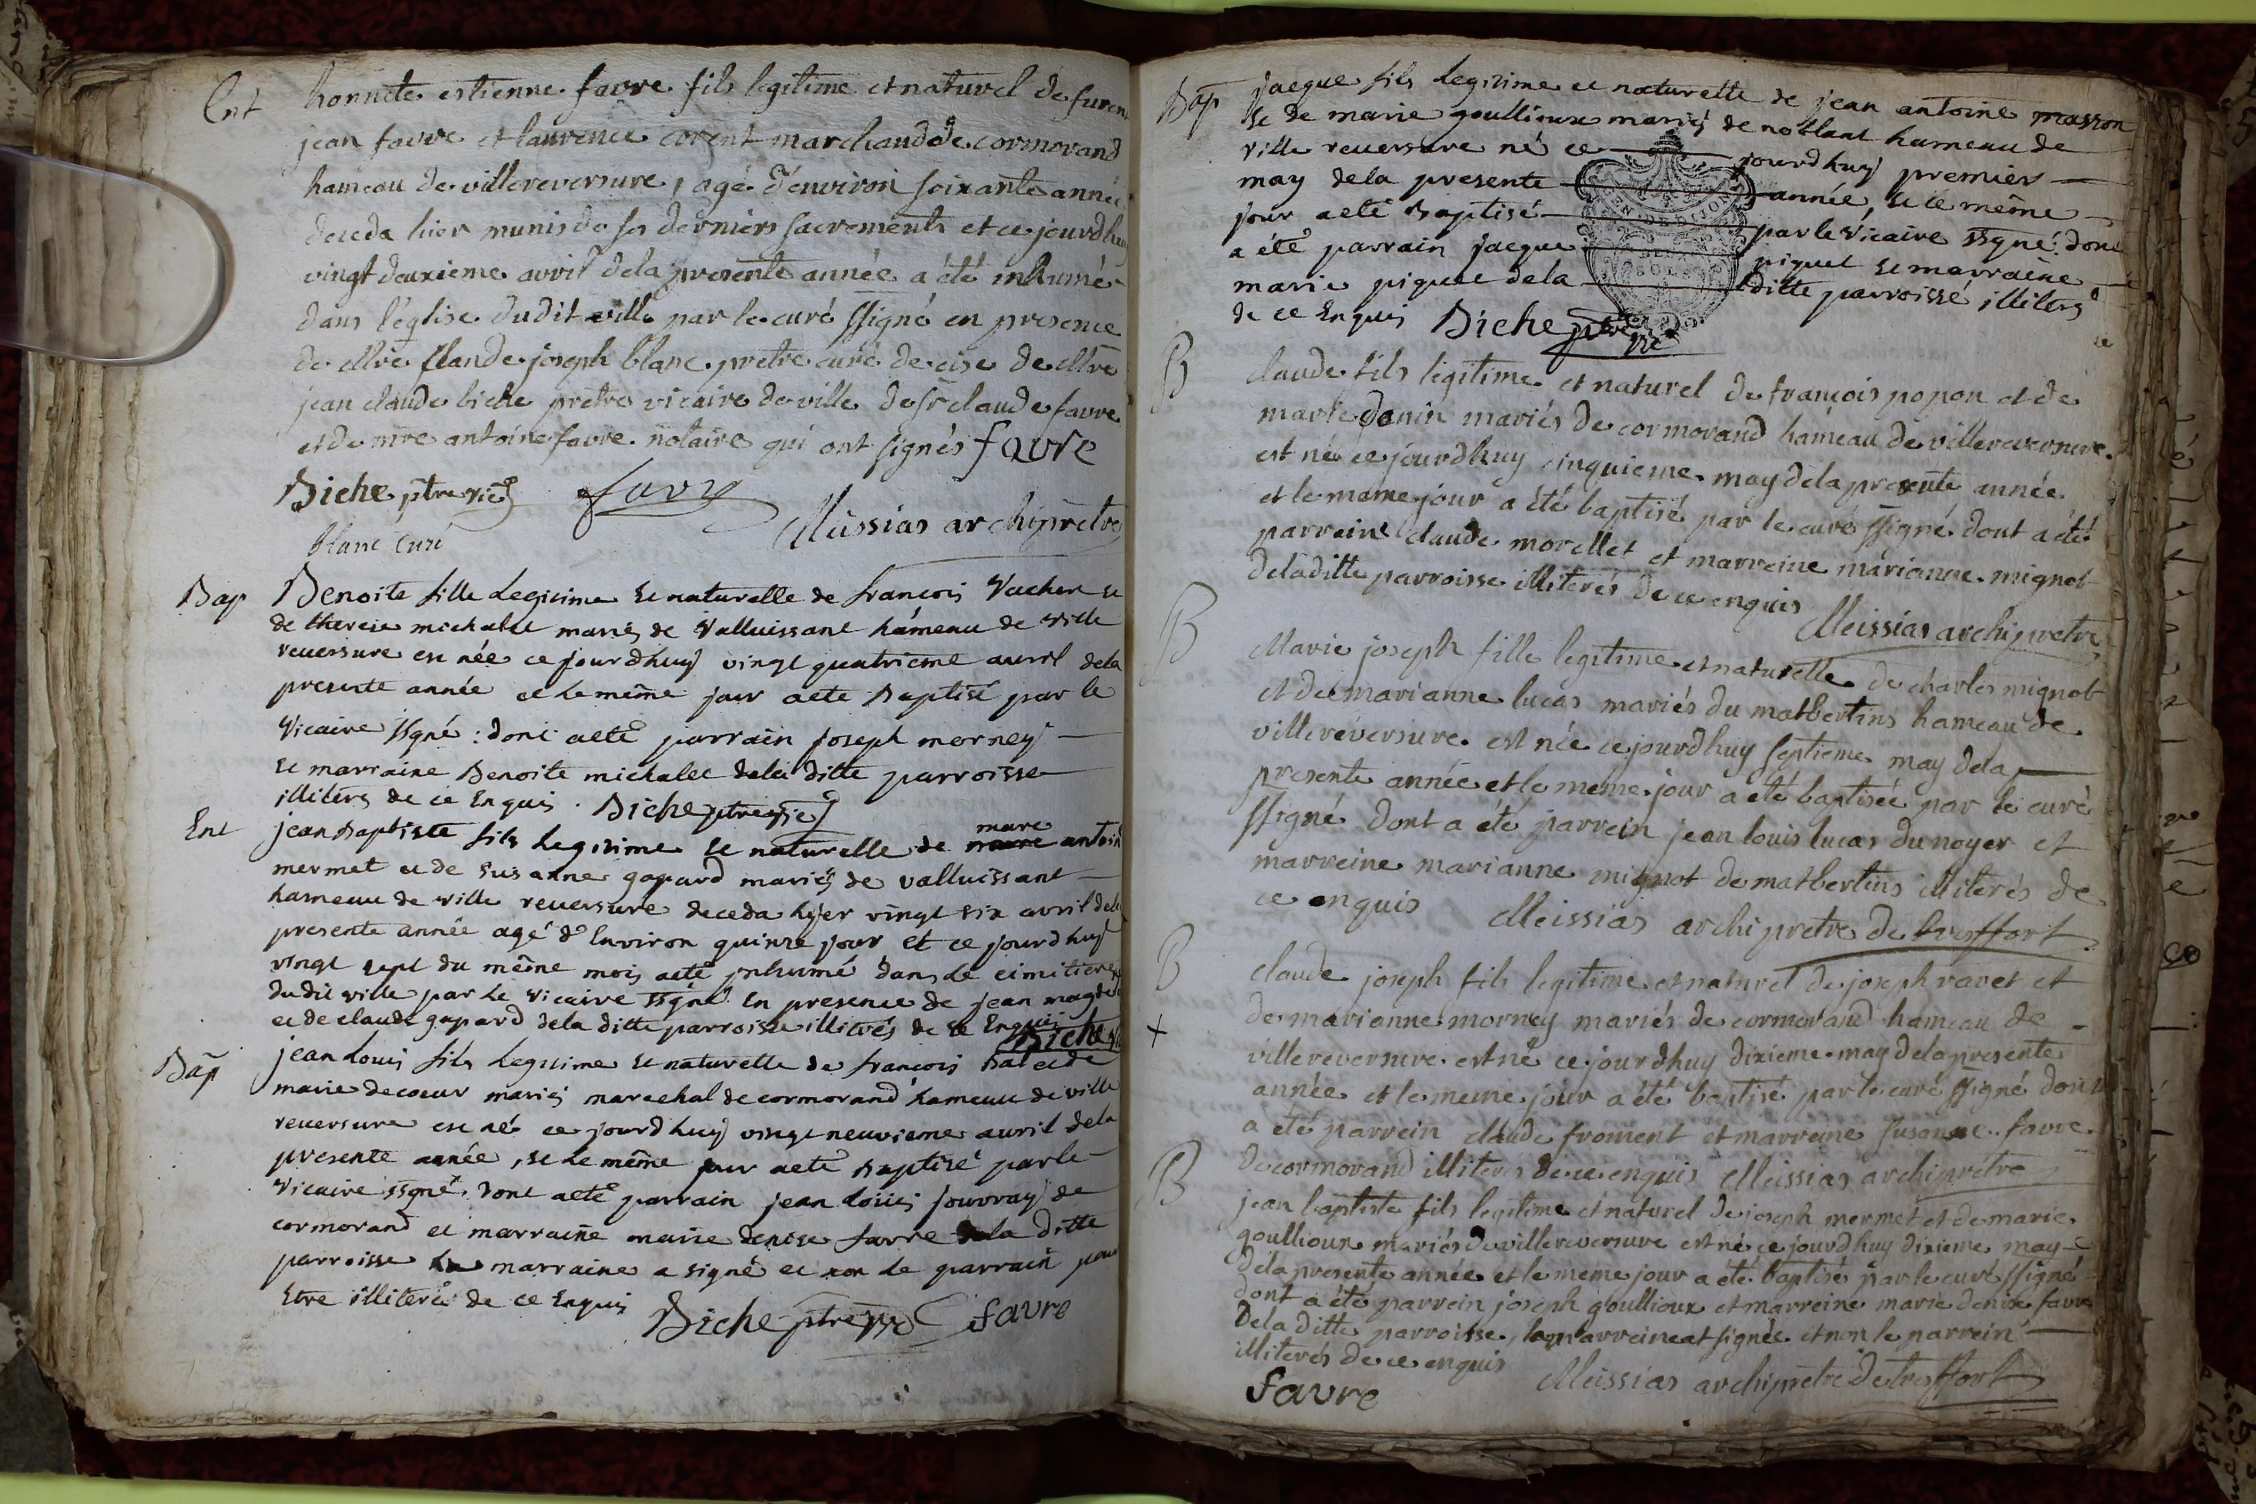 Ent
honnete estienne favre fils legitime et naturel de furent
jean favre et laurence corent marchand de cormorand
hameau de villereversure, agé d'environ soixante année
deceda hier munis de ses derniers sacrements et ce jourdhuy
vingt deuxieme avril dela presente année a été inhumé
dans l'église dudit ville par le curé ssigné en presence
de Mre Claude joseph blanc pretre curé de cise de Mre
jean claude biche pretre vicaire de ville de sr claude favre
et de mre antoine favre notaire qui ont signés favre
Biche ptre vic
favre
Meissias archipretre
blanc curé
Bap
Benoite fille Legitime et naturelle de francois Vacher et
de therese michalet mariés de Valluissant hámeau de ville
reuersure est née ce jourdhuy vingt quatrieme auril dela
presente année et le même jour aeté Baptisé par le
Vicaire ssgné: dont aeté parrain joseph morney
et marraine Benoite michalet dela ditte parroisse
illiterés de ce Enquis. Biche ptre vic
Ent
jean Baptiste fils Legitime et naturelle de marc antoine
mermet et de susanne gapard mariés de valluissant
hameau de ville reuersure deceda hyer vingt six avril dela
presente année agé d'Environ quinze jour et ce jourdhuy
vingt sept du même mois aeté jnhumé dans le cimitiere
dudit ville par le vicaire ssgné En presence de jean
et de claude gapard dela ditte parroisse illiterés de ce Enquis
Biche
Bap
jean Louis fils Legitime et naturelle de francois Bal et de
marie decoeur mariés marechal de cormorand hameau de ville
reuersure est né ce jourdhuy vingt neuvieme auril dela
presente année, et le même jour aeté Baptisé par le
Vicaire ssgné. dont aeté parrain jean Loüis jouvray de
cormorand et marraine marie denise favre dela ditte
parroisse la marraine a signé et non le parrain pour
Etre illiteré de ce Enquis
Biche ptre vic favre
Bap
jacque fils Legitime et naturelle de jean antoine masson
et de marie goullioux mariés de noblant hameau de
ville reuersure né ce jourdhuy premier
may dela presente année, et le même
jour aeté Baptisé par le vicaire ssgné: dont
a été parrain jacque piquet et marraine
marie piquet dela ditte parroisse illiterés
de ce Enquis Biche ptre vic
B
claude fils legitime et naturel de françois popon et de
marie danin mariés de cormorand hameau de villereversure
est né ce jourdhuy cinquieme may dela presente année
et le meme jour a été baptisé par le curé ssigné dont a été
parrein claude morellet et marreine marianne mignot
dela ditte parroisse illiterés de ce enquis
Meissias archipretre
B
Marie joseph fille legitime et naturelle de charles mignot
et de marianne lucas mariés du matbertins hameau de
villereversure est née ce jourdhuy septieme may dela
presente année et le meme jour a été baptisée par le curé
ssigné dont a été parrein jean louis lucas du noyer et
marreine marianne mignot de matbertins illiterés de
ce enquis Meissias archipretre de treffort
B
claude joseph fils legitime et naturel de joseph ravet et
de marianne morney mariés de cormorand hameau de
+
villereversure est né ce jourdhuy dixieme may dela presente
année et le meme jour a été baptisé par le curé ssigné dont
a été parrein claude froment et marreine susanne favre
de cormorand illiterés de ce enquis Meissias archipretre
B
jean baptiste fils legitime et naturel de joseph mermet et de marie
goullioux mariés de villereversure est né ce jourdhuy dixieme may
dela presente année et le meme jour a été baptisé par le curé ssigné
dont a été parrein joseph goullioux et marreine marie denise favre
dela ditte parroisse, la marreine at signée et non le parrein
illiterés de ce enquis Meissias archipretre de treffort
favre